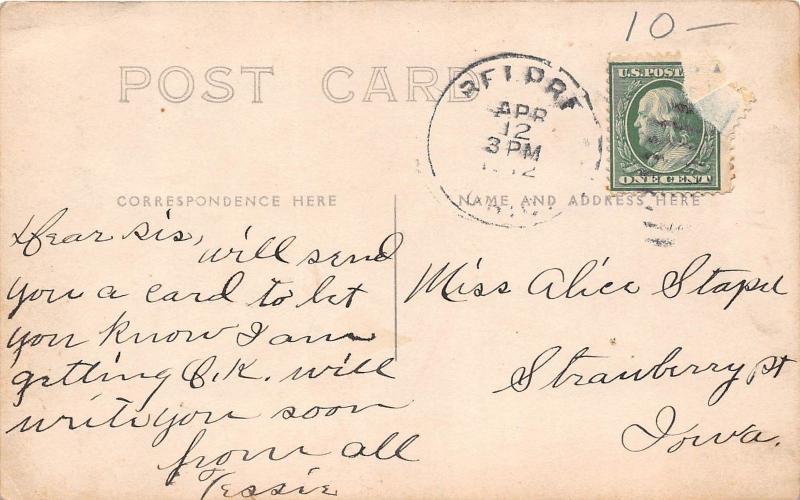 10—
POST CARD
U.S. POST
ONE CENT
BELPRE
APR
12
3 PM
CORRESPONDENCE HERE
NAME AND ADDRESS HERE
Dear sis,
will send
you a card to let
you know I am
getting O.K. will
write you soon
from all
Tessie
Miss Alice
Strawberry pt
Iowa.